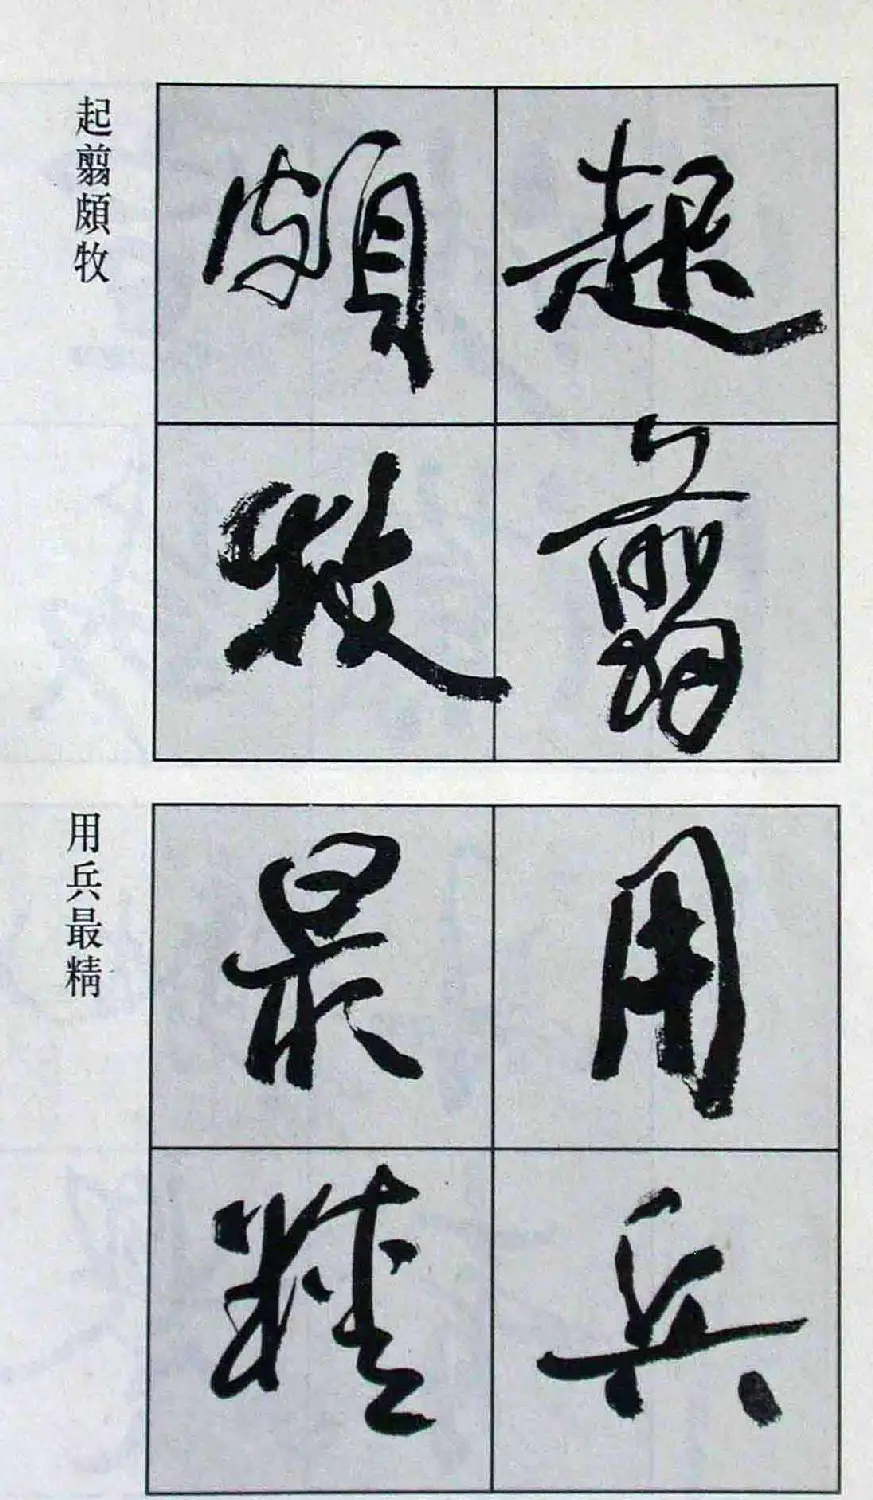 起翦頗牧
起翦
頗牧
用兵最精
用兵
最精